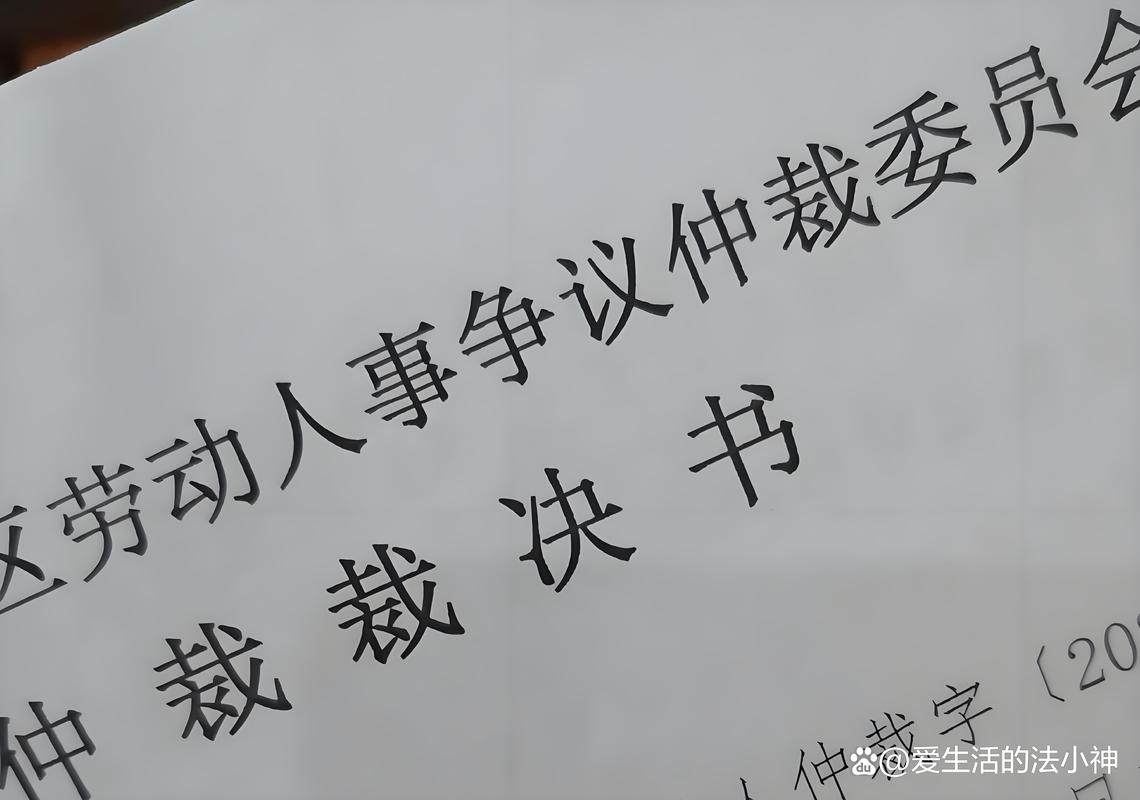 区劳动人事争议仲裁委员会
仲裁裁决书
人仲裁字〔20
@爱生活的法小神